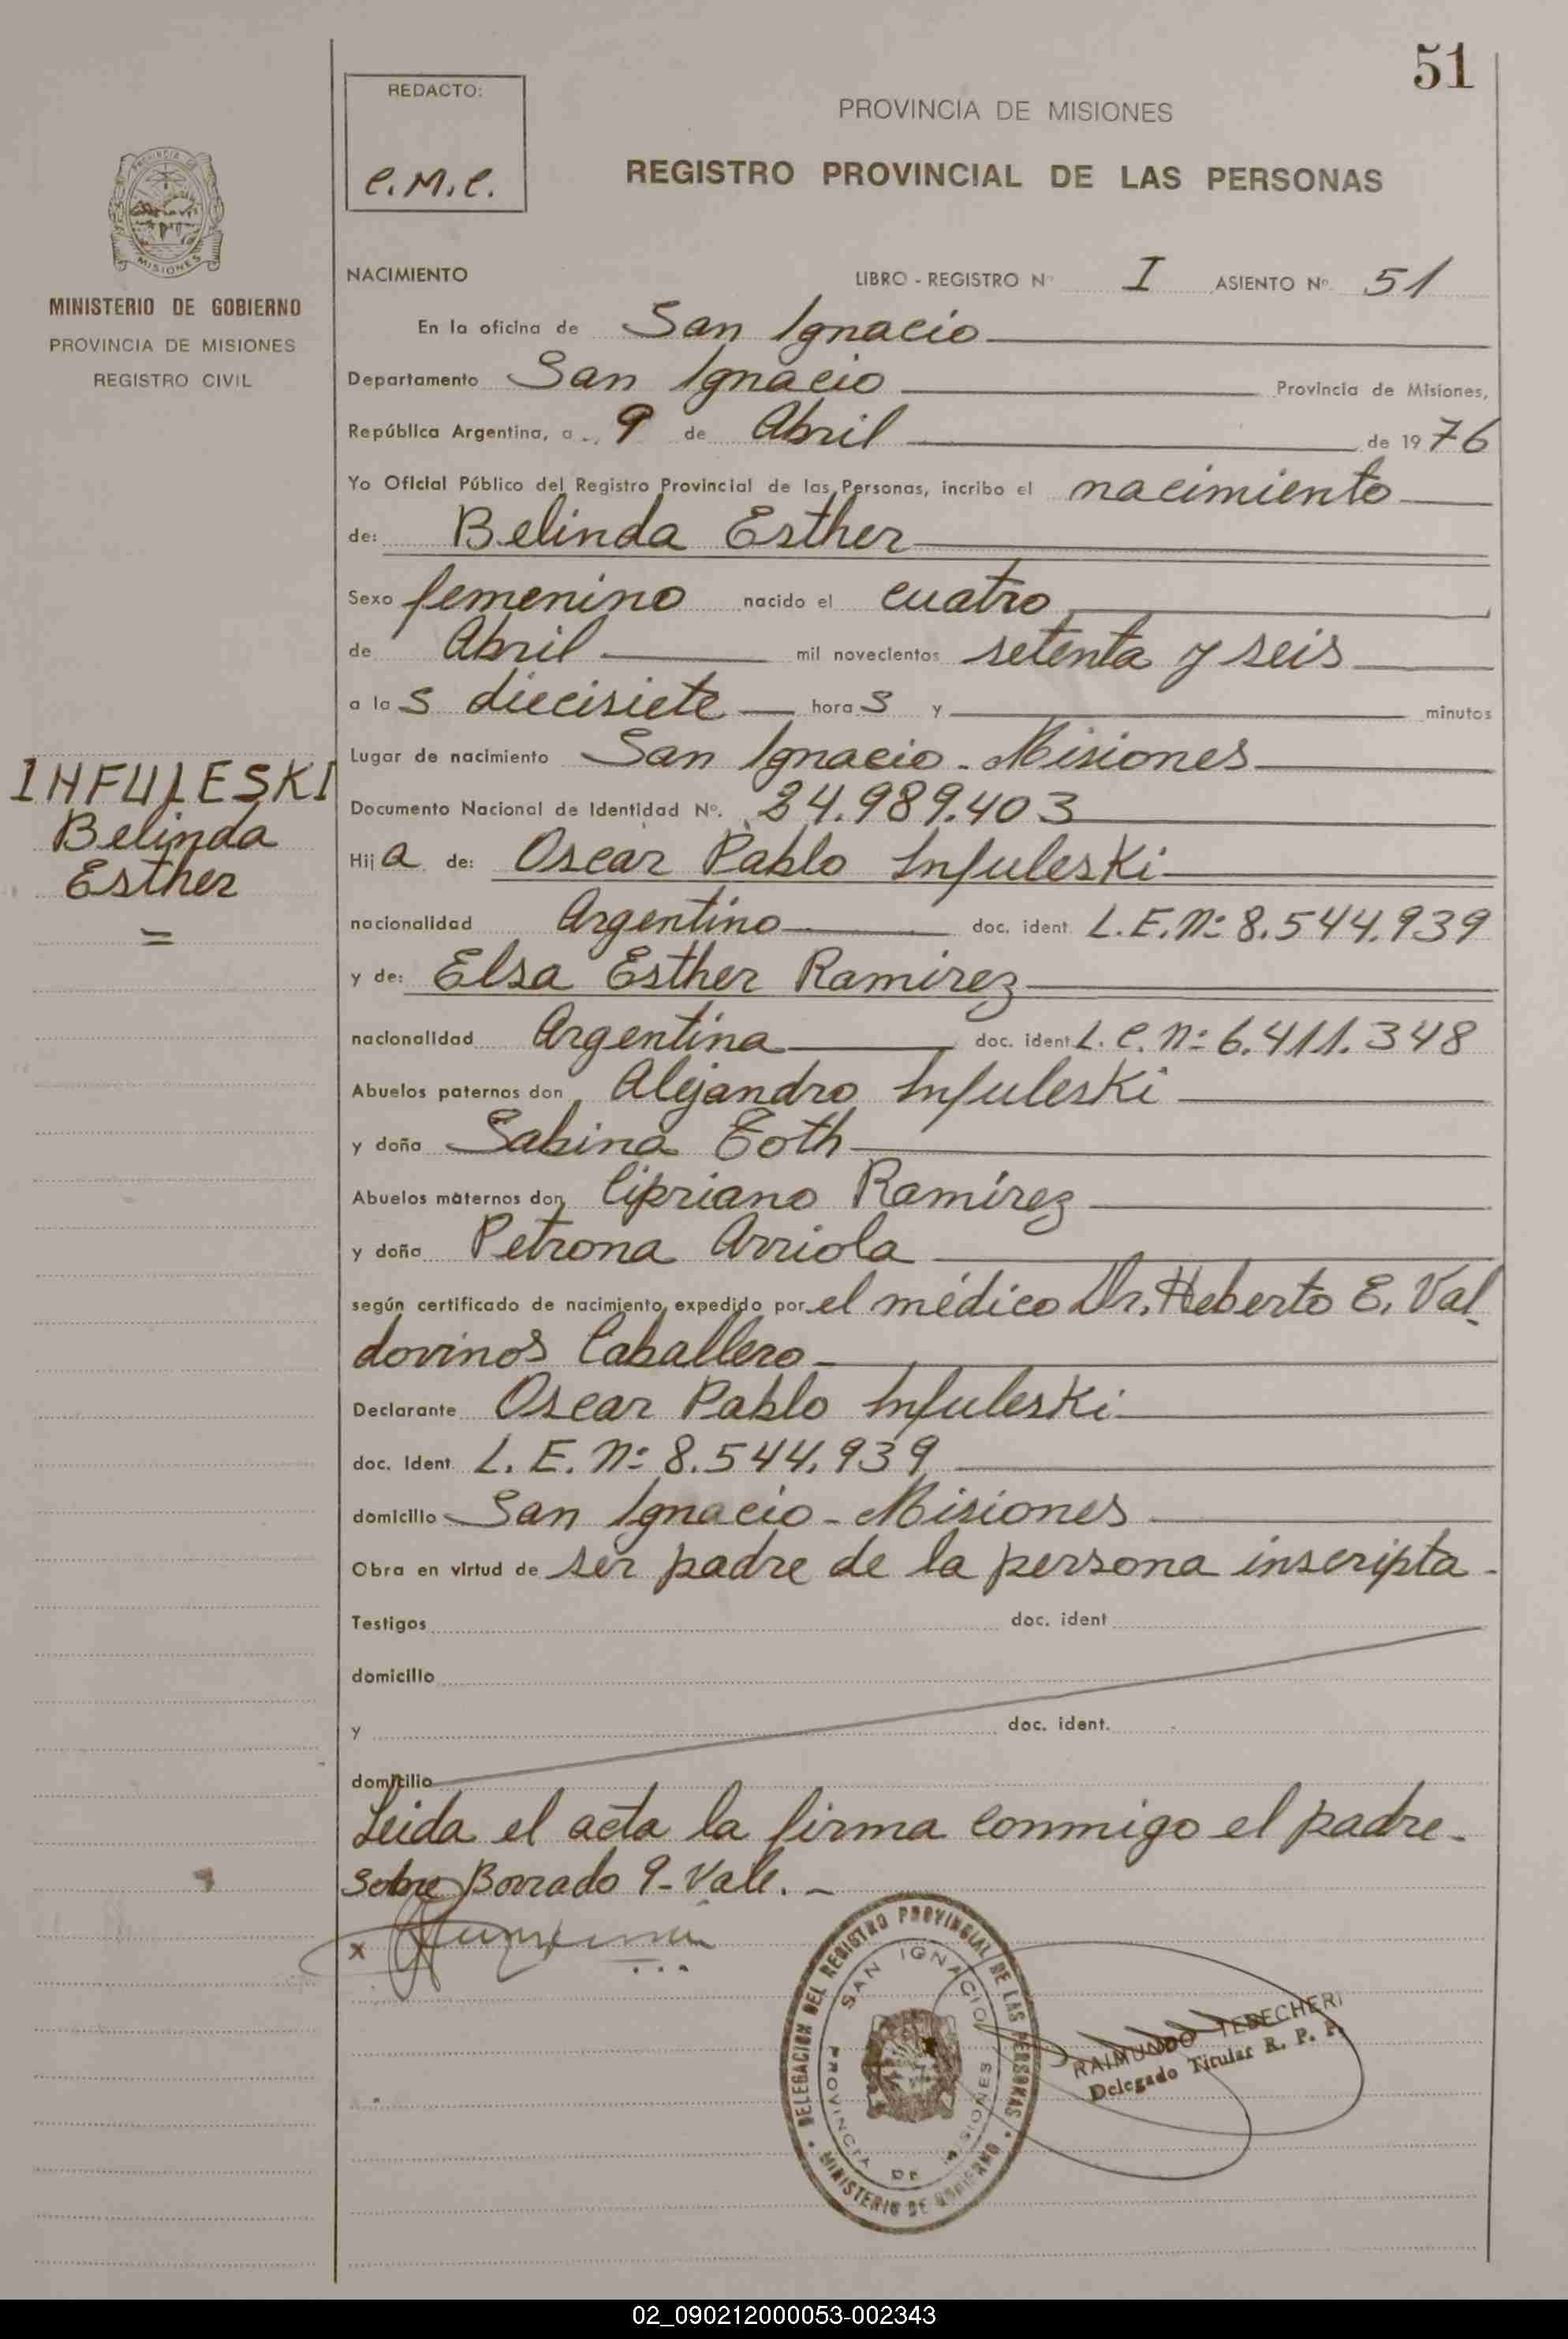 51
REDACTO:
C.M.C.
PROVINCIA DE MISIONES
REGISTRO PROVINCIAL DE LAS PERSONAS
PROVINCIA DE
MISIONES
MINISTERIO DE GOBIERNO
PROVINCIA DE MISIONES
REGISTRO CIVIL
NACIMIENTO LIBRO - REGISTRO Nº I ASIENTO Nº 51
En la oficina de San Ignacio
Departamento San Ignacio Provincia de Misiones,
República Argentina, a 9 de Abril de 1976
Yo Oficial Público del Registro Provincial de las Personas, incribo el nacimiento
de: Belinda Esther
Sexo femenino nacido el cuatro
de Abril mil novecientos setenta y seis
a las diecisiete horas y minutos
INFULESKI
Belinda
Esther
=
Lugar de nacimiento San Ignacio - Misiones
Documento Nacional de Identidad Nº. 24.989.403
Hija de: Oscar Pablo Infuleski
nacionalidad Argentino doc. ident L.E.Nº 8.544.939
y de: Elsa Esther Ramírez
nacionalidad Argentina doc. ident L.C.Nº 6.411.348
Abuelos paternos don Alejandro Infuleski
y doña Sabina Toth
Abuelos maternos don Cipriano Ramírez
y doña Petrona Arriola
según certificado de nacimiento expedido por el médico Dr. Heberto E. Val-
dovinos Caballero
Declarante Oscar Pablo Infuleski
doc. Ident L.E.Nº 8.544.939
domicilio San Ignacio - Misiones
Obra en virtud de ser padre de la persona inscripta.
Testigos doc. ident
domicilio
y doc. ident.
domicilio
Leida el acta la firma conmigo el padre.
Sobre Borrado 9 - Vale. -
x
DELEGACION DEL REGISTRO PROVINCIAL DE LAS PERSONAS
SAN IGNACIO
PROVINCIA DE MISIONES
MINISTERIO DE GOBIERNO
RAIMUNDO TEDECHERI
Delegado Titular R. P. P.
02_090212000053-002343